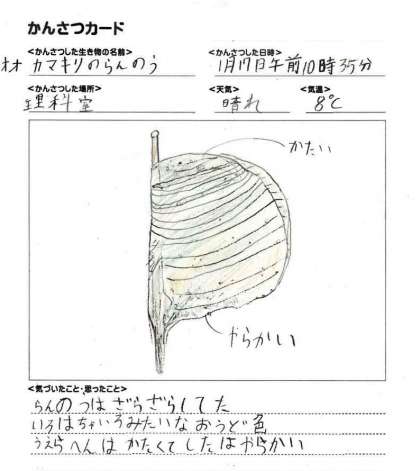 かんさつカード
<かんさつした生き物の名前> <かんさつした日時>
オオカマキリのらんのう 1月17日午前10時35分
<かんさつした場所> <天気> <気温>
理科室 晴れ 8℃
かたい
やらかい
<気づいたこと・思ったこと>
らんのつはざらざらしてた
いろはちゃいろみたいなおうど色
うえらへんはかたくてしたはやらかい